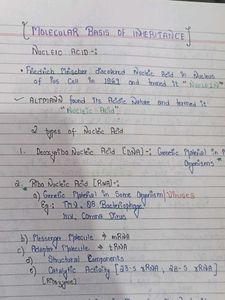 [MOLECULAR BASIS OF INHERITANCE]
NUCLEIC ACID -:
• Friedrich Meischer discovered Nucleic Acid in Nucleus
of Pus Cell in 1869 and termed it "Nuclein"
✓ ALTMANN found its Acidic Nature and termed it
"Nucleic Acid"
2 types of Nucleic Acid
1. Deoxyribo Nucleic Acid [DNA] -: Genetic Material in
Organisms
2. Ribo Nucleic Acid [RNA] -:
a) Genetic Material in Some Organism/Viruses
Eg:- TMV, QB Bacteriophage
HIV, Corona Virus
b) Messenger Molecule → mRNA
c) Adaptor Molecule → tRNA
d) Structural Components
e) Catalytic Activity [23-S rRNA, 28-S rRNA]
[Ribozyme]